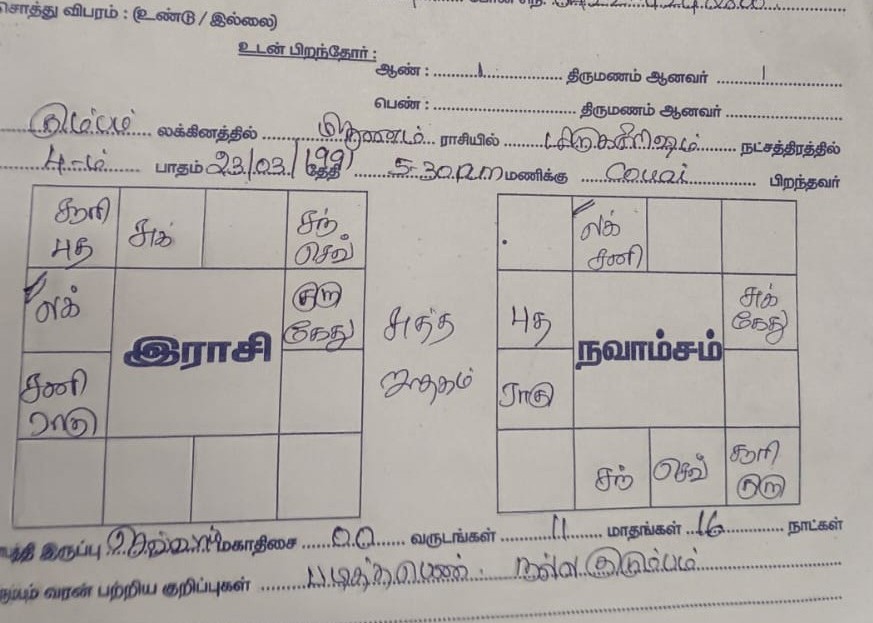 சொத்து விபரம் : (உண்டு / இல்லை)
உடன் பிறந்தோர் :
ஆண் : 1 திருமணம் ஆனவர் 1
பெண் : திருமணம் ஆனவர்
கும்பம் லக்கினத்தில் மிதுனம் ராசியில் மிருகசீரிஷம் நட்சத்திரத்தில்
4-ம் பாதம் 23/03/1991 தேதி 5.30 மணிக்கு பிறந்தவர்
சூரி சந் லக்
புத சுக் செவ் சனி
லக் குரு சுக்
கேது சுத்த புத கேது
இராசி நவாம்சம்
சனி ஜாதகம் ராகு
ராகு
சூரி
சந் செவ் குரு
இருப்பு செவ்வாய் மகாதிசை 00 வருடங்கள் 11 மாதங்கள் 16 நாட்கள்
வரன் பற்றிய குறிப்புகள் படித்த பெண். நல்ல குடும்பம்